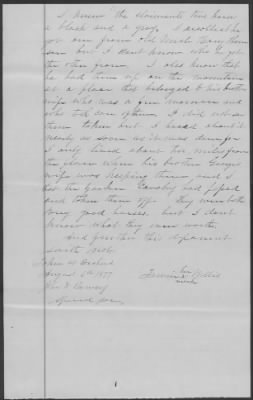 I knew the claimants two horses
a black and a gray. I recollect he
got one from old Uncle
son but I dont know who he got
the other from. I also know that
he had them up on the mountain
at a place that belonged to his brothers
wife who was a free woman and
who took care of them. I did not see
them taken but I heard about it
nearly as soon as it was done for
I only lived about two miles from
the place where his brother
wife was keeping them, and I
had the Yankee Cavalry had passed
and taken them off. They were both
very good horses. but I dont
know what they were worth.
And further this deponent
saith not.
John W.
August 6th 1877 his
mark Willis
Special Com